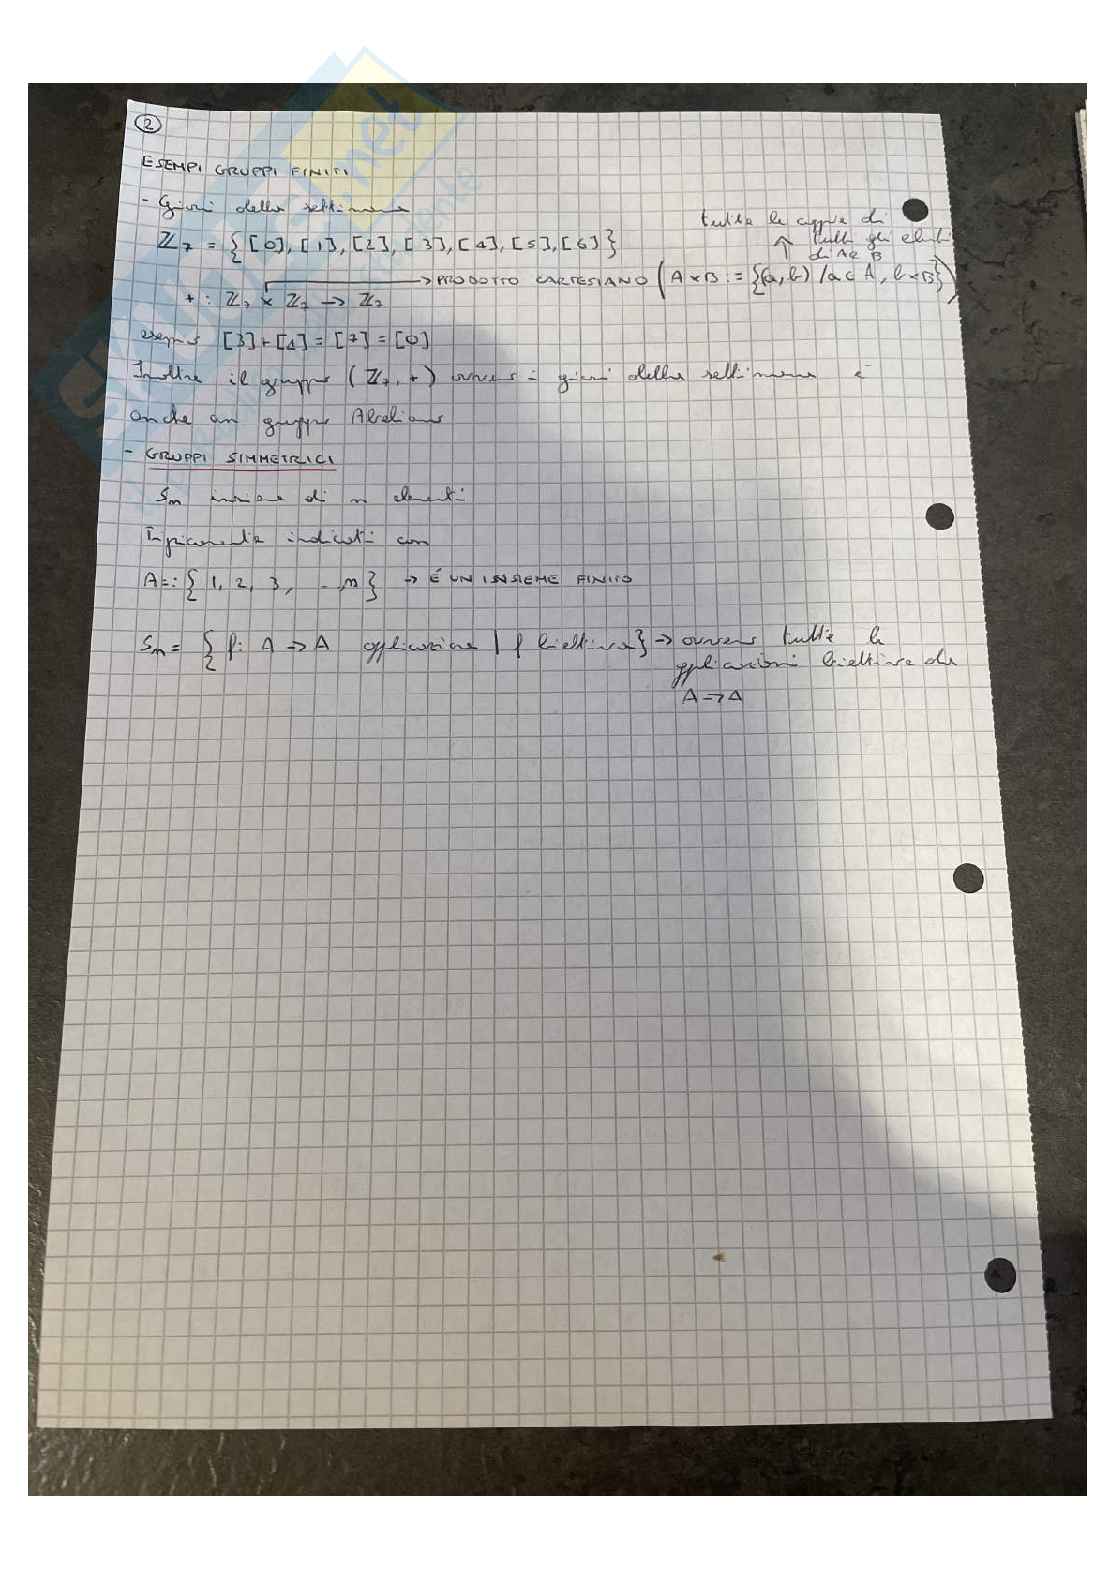 2
ESEMPI GRUPPI FINITI
- Giorni della settimana
tutte le coppie di
tutti gli elementi
di A e B
ℤ₇ = {[0], [1], [2], [3], [4], [5], [6]}
→ PRODOTTO CARTESIANO (A×B := {(a, b) / a ∈ A, b ∈ B})
+ : ℤ₇ × ℤ₇ → ℤ₇
esempio [3]+[4] = [7] = [0]
Inoltre il gruppo (ℤ₇, +) ovvero i giorni della settimana è
anche un gruppo Abeliano
- GRUPPI SIMMETRICI
Sn insieme di n elementi
Tipicamente indicati con
A=:{1, 2, 3, ..., n} → É UN INSIEME FINITO
Sn = {f: A → A applicazione | f biettiva} → ovvero tutte le
applicazioni biettive da
A → A